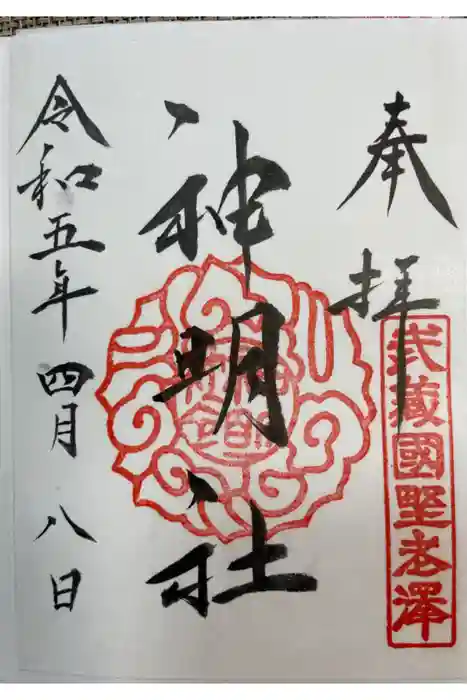 奉拝
武藏國野老澤
神明社
令和五年四月八日